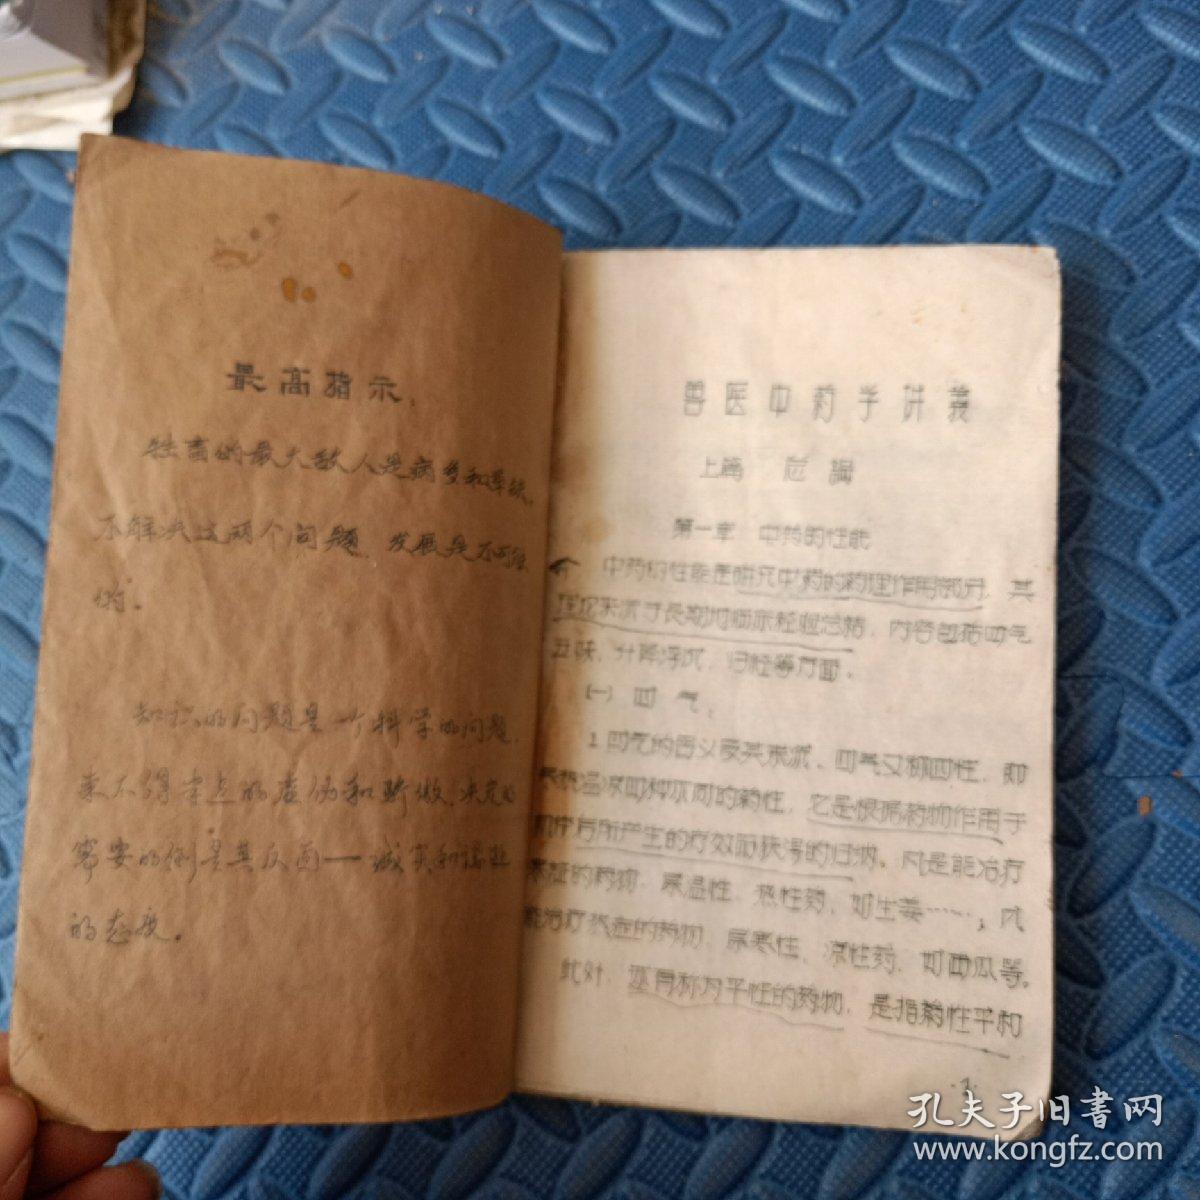 最高指示
牲畜的最大敌人是病多和草缺，
不解决这两个问题，发展是不可能
的。
知识的问题是一个科学的问题，
来不得半点的虚伪和骄傲，决定的
需要的倒是其反面——诚实和谦逊
的态度。
兽医中药学讲义
上篇 总论
第一章 中药的性能
中药的性能是研究中药的药理作用部分，其
理论来源于长期地临床经验总结，内容包括四气
五味、升降浮沉、归经等方面。
(一) 四气，
1. 四气的含义及其来源、四气又称四性，即
寒热温凉四种不同的药性，它是根据药物作用于
机体后所产生的疗效而获得的归纳。凡是能治疗
寒症的药物，属温性、热性药，如生姜……，凡
能治疗热症的药物，属寒性、凉性药，如西瓜等。
此外，还有称为平性的药物，是指药性平和
·1·
孔夫子旧书网
www.kongfz.com